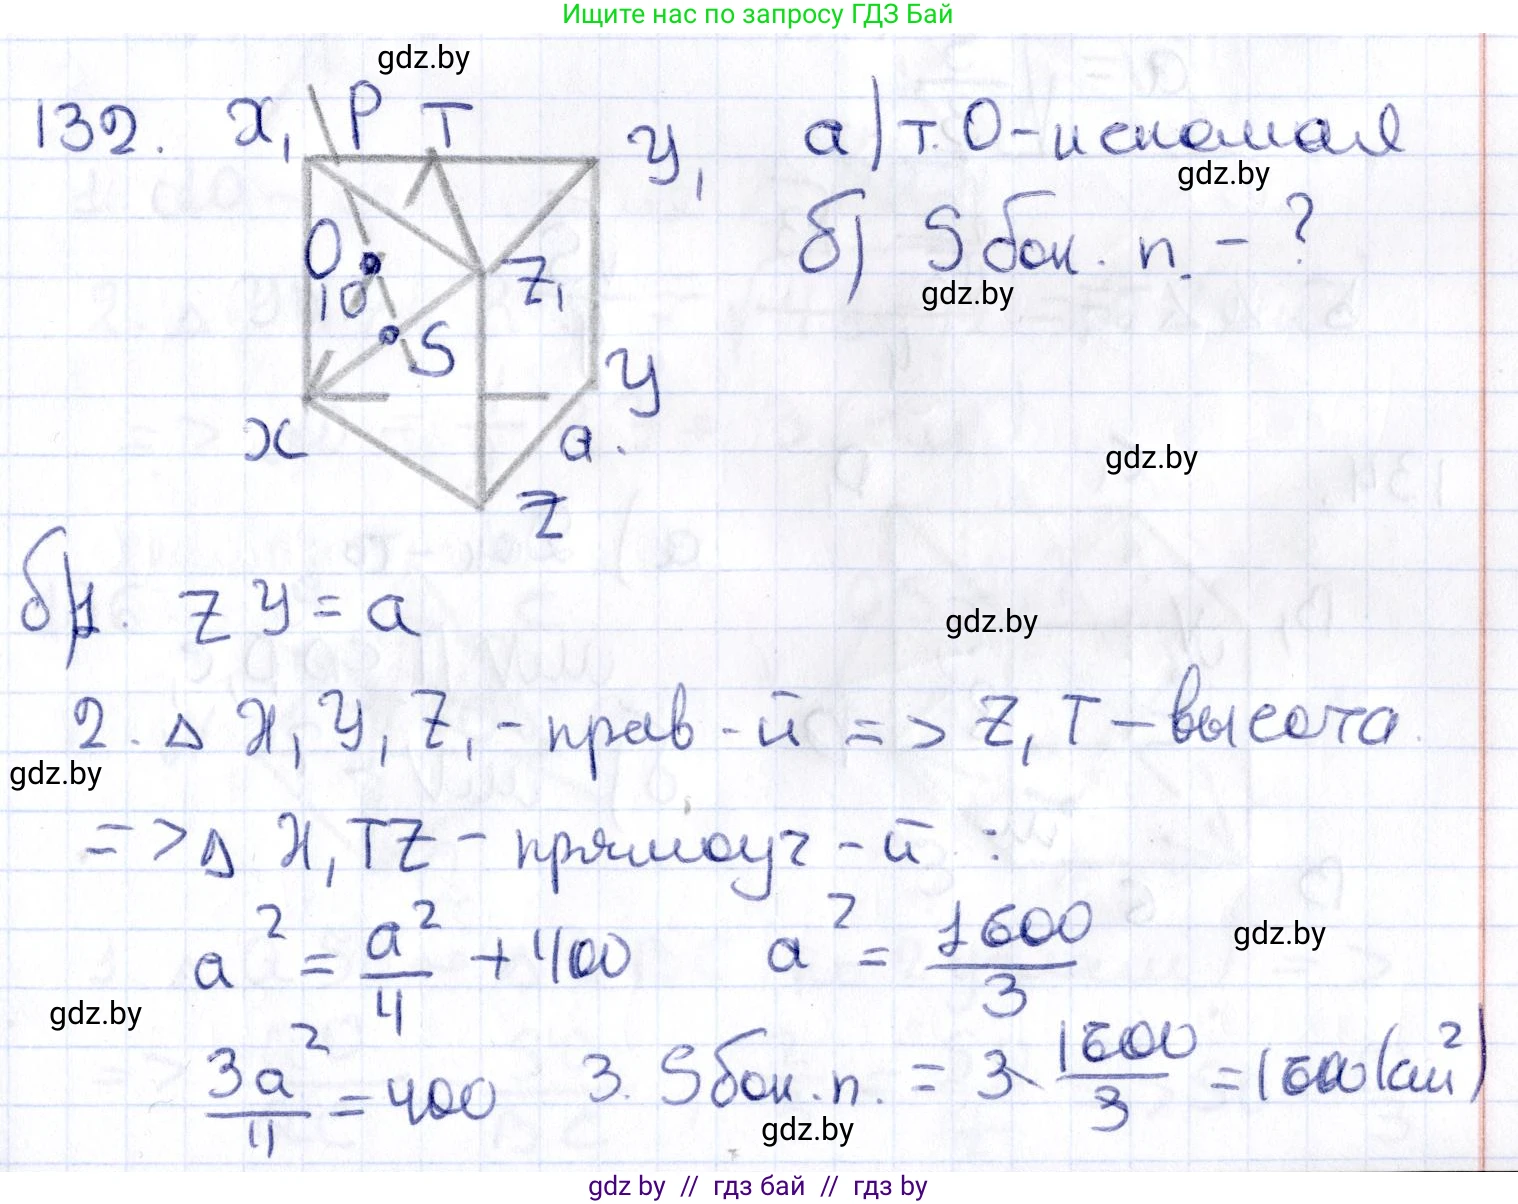 Ищите нас по запросу ГДЗ Бай
gdz.by
132. X₁ P T Y₁ а) т. О - искомая
gdz.by
б) S бок. п. - ?
O Z₁
10
gdz.by
S
Y
X a.
gdz.by
Z
б) 1. ZY = a
gdz.by
2. Δ X₁Y₁Z₁ - прав-й => Z₁T - высота
gdz.by
=> Δ X₁TZ - прямоуг-й :
a² = a²/4 + 400 a² = 1600/3
gdz.by
gdz.by
3a²/4 = 400 3. S бок. п. = 3 · 1600/3 = 1600 (см²)
gdz.by
gdz by // гдз бай // гдз by